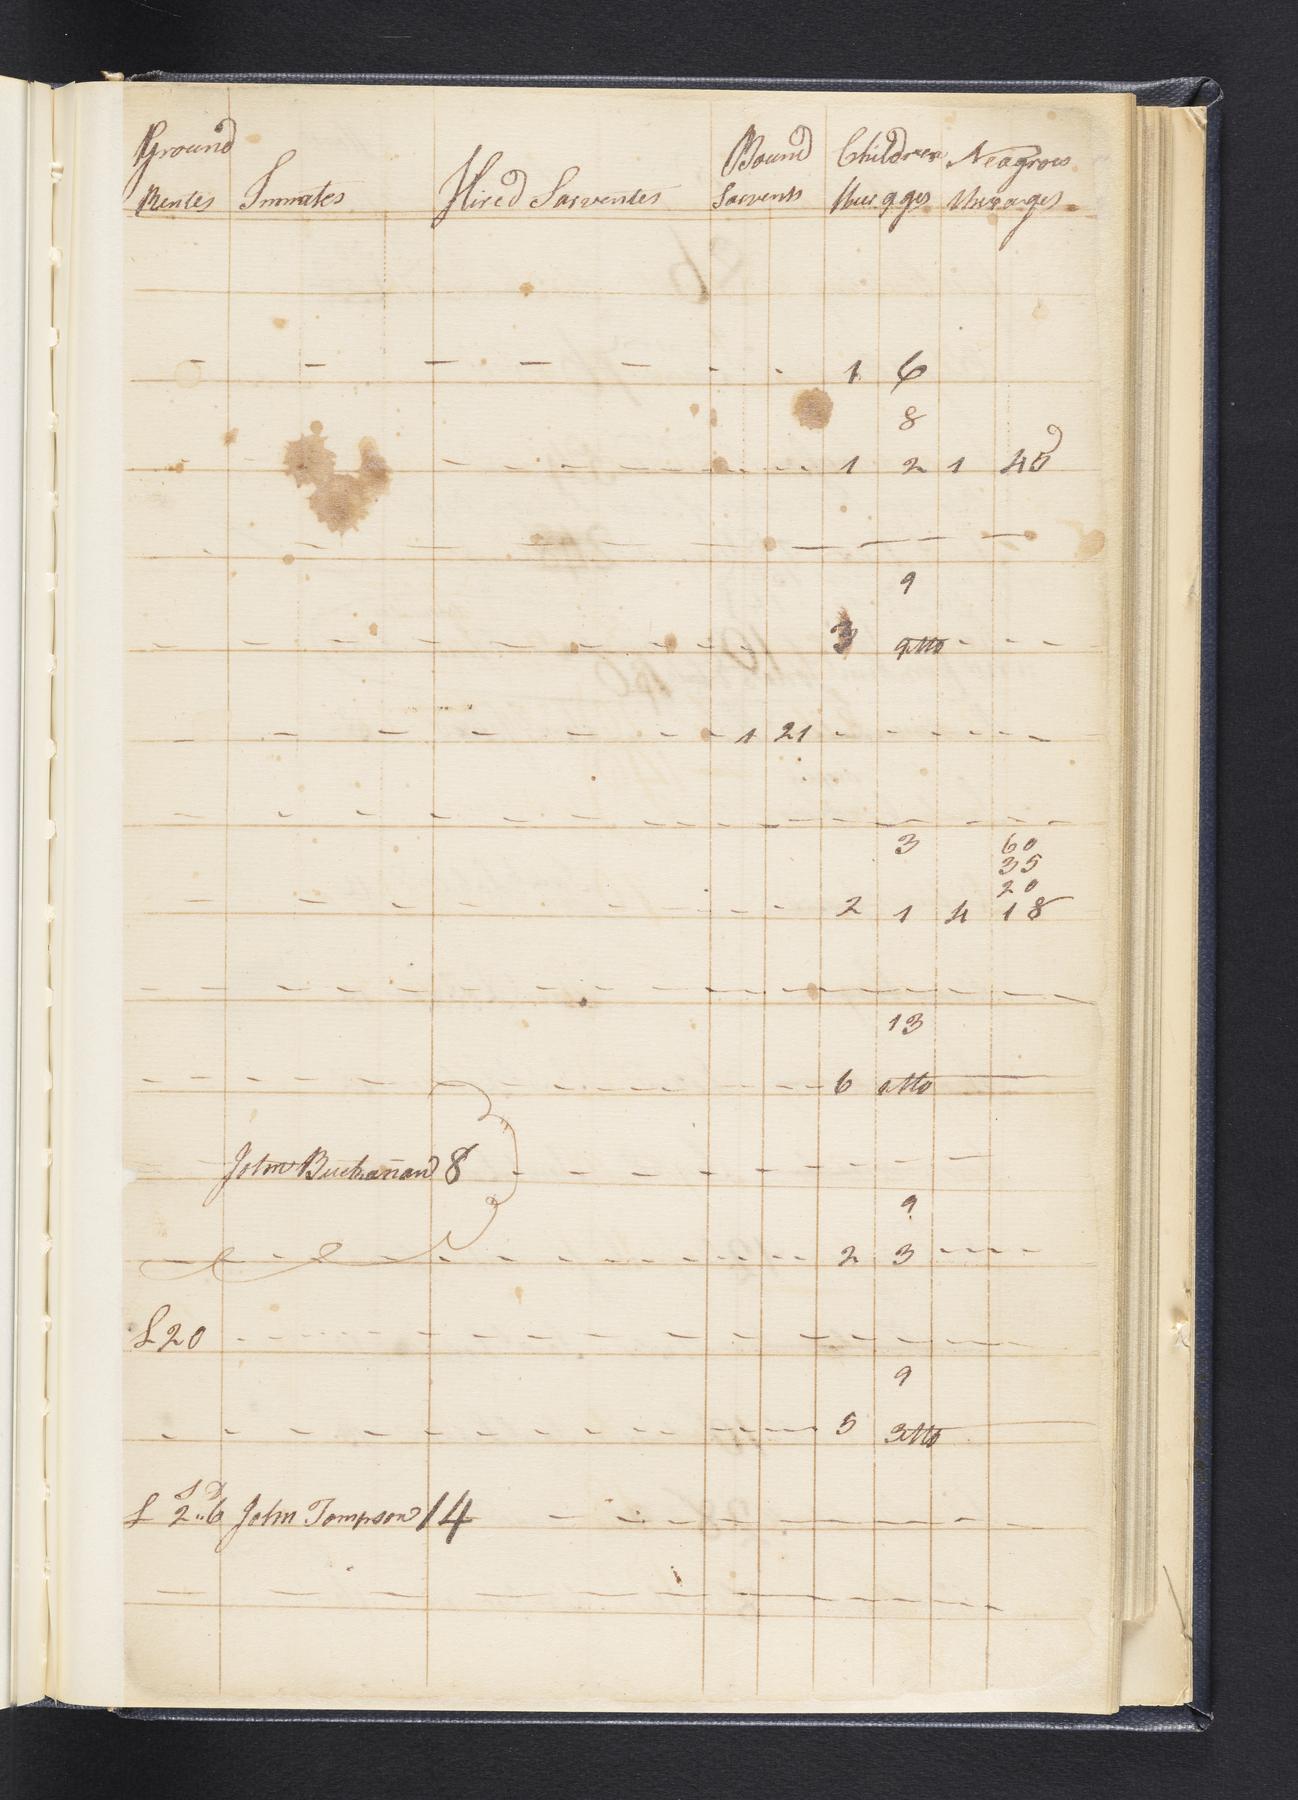 Ground Bound Children Neagrows
Rentes Inmates Hired Sarventes Sarvents
1 6
8
1 2 1 40
9
3
1 21
3 60
35
20
2 1 4 18
13
6
John Buchanan 8
9
2 3
£20
9
5
S D
£ 2..6 John Tompson 14